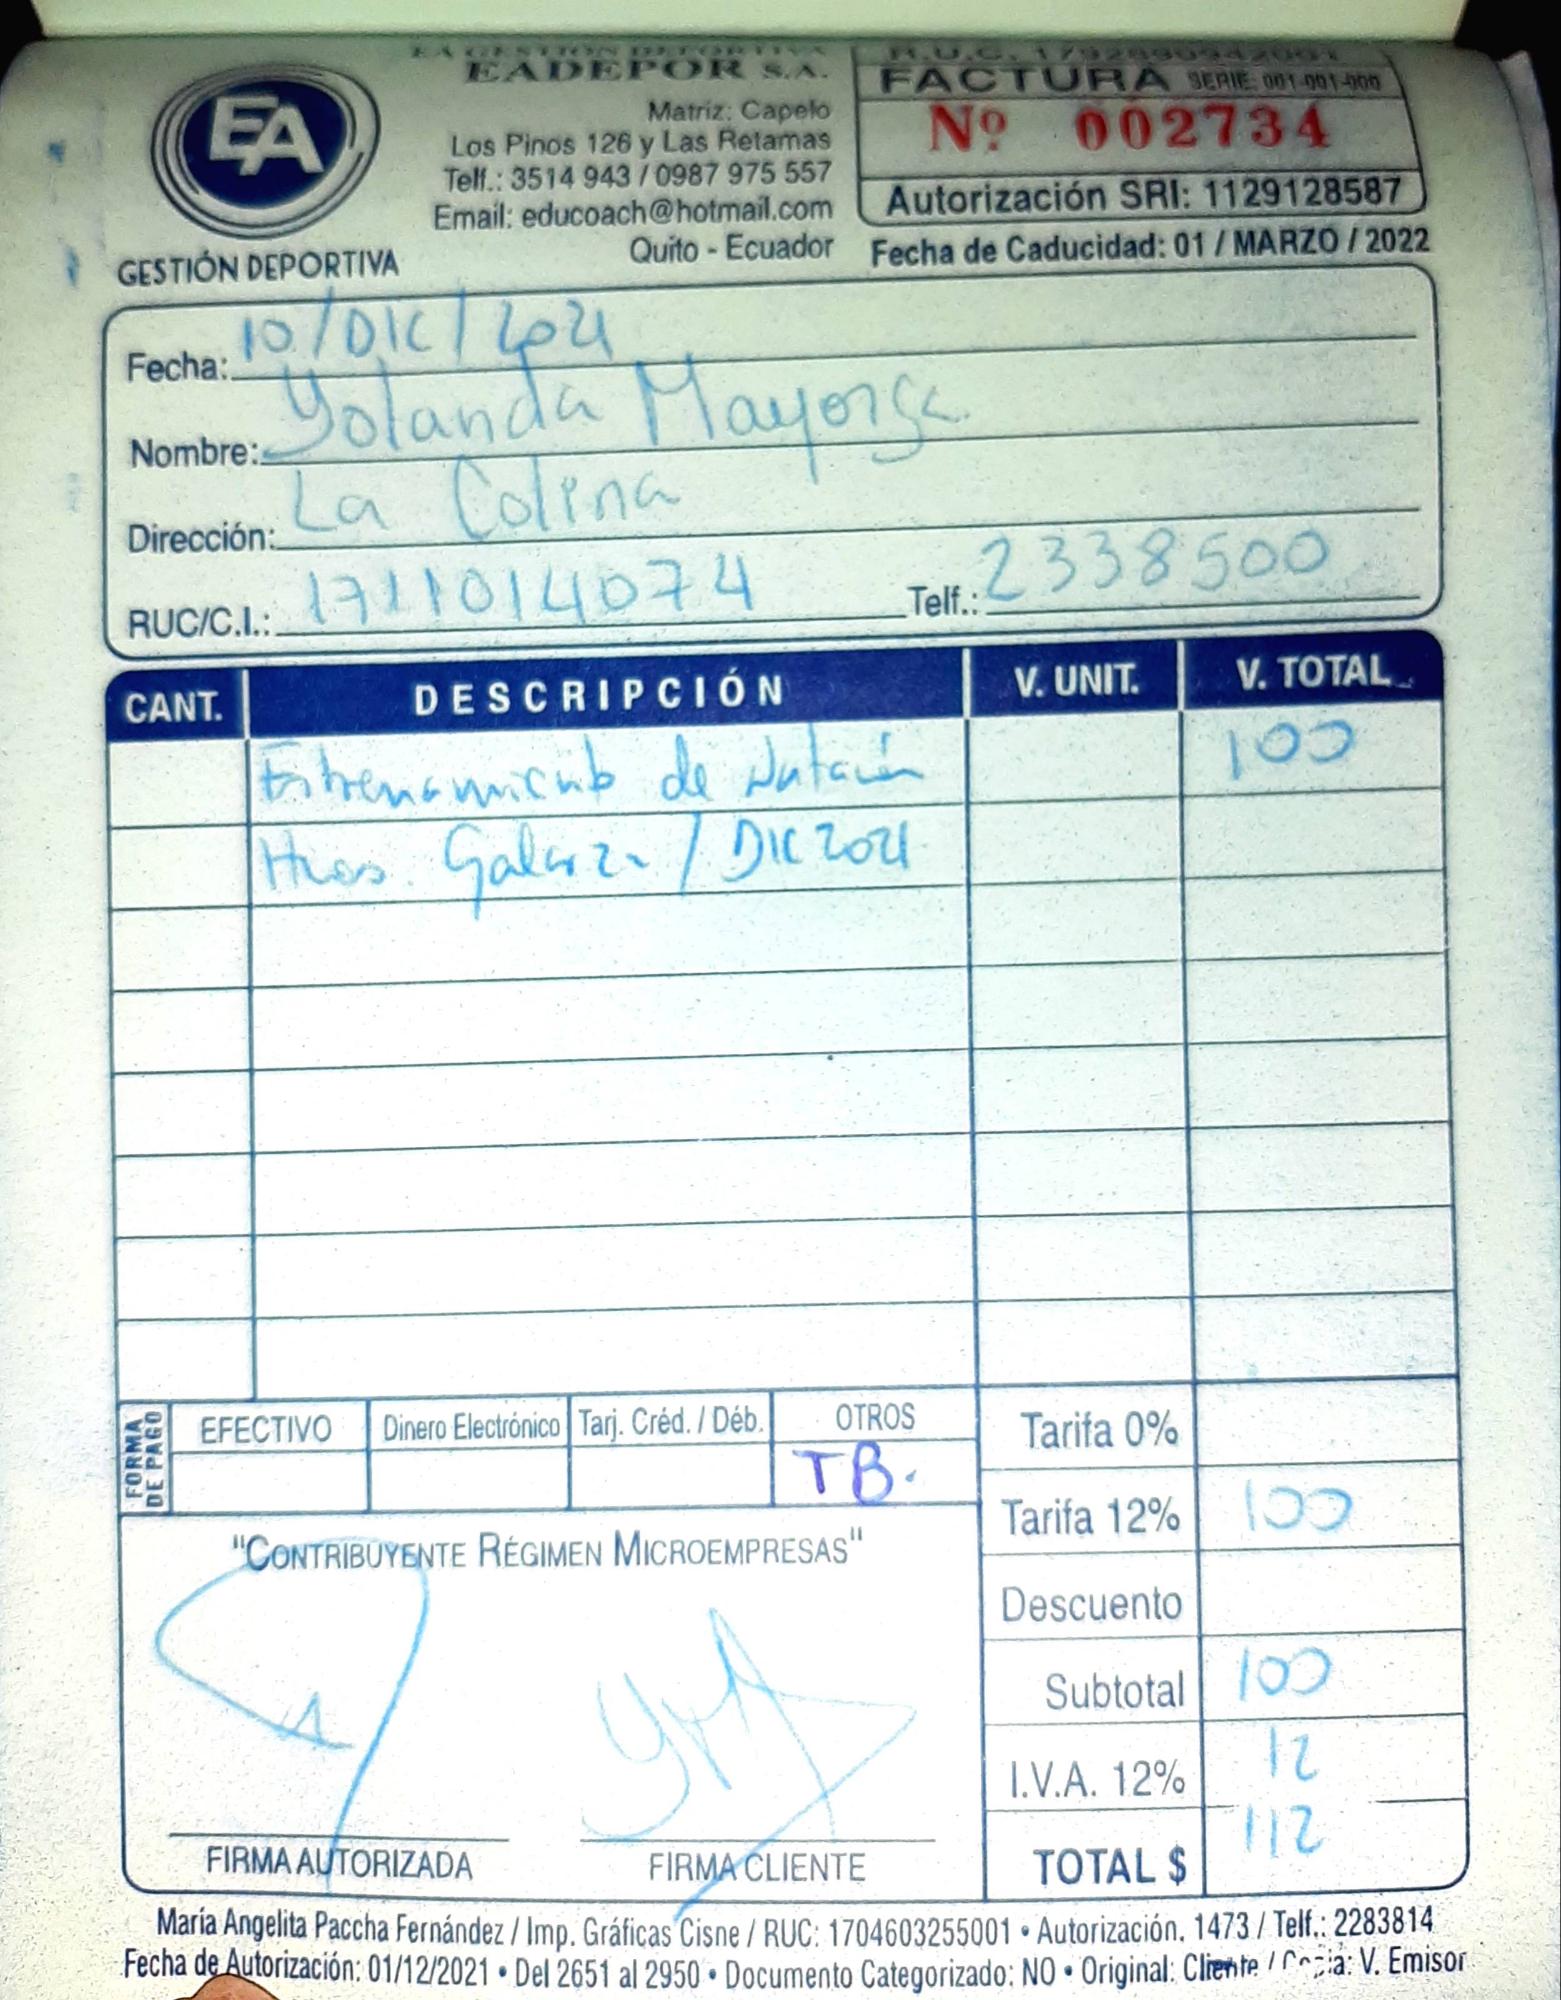 EA GESTIÓN DEPORTIVA
EADEPOR S.A.
Matriz: Capelo
Los Pinos 126 y Las Retamas
Telf.: 3514 943 / 0987 975 557
Email: educoach@hotmail.com
Quito - Ecuador
EA
GESTIÓN DEPORTIVA
R.U.C.
FACTURA SERIE: 001-001-000
Nº 002734
Autorización SRI: 1129128587
Fecha de Caducidad: 01 / MARZO / 2022
Fecha: 10/DIC/2021
Nombre: Yolanda Mayorga
Dirección: La Colina
RUC/C.I.: 1711014074 Telf.: 2338500
CANT. DESCRIPCIÓN V. UNIT. V. TOTAL
Entrenamiento de Natación 100
Hnos. Galarza / DIC 2021
FORMA DE PAGO EFECTIVO Dinero Electrónico Tarj. Créd. / Déb. OTROS
TB.
Tarifa 0%
Tarifa 12% 100
Descuento
Subtotal 100
I.V.A. 12% 12
TOTAL $ 112
"CONTRIBUYENTE RÉGIMEN MICROEMPRESAS"
FIRMA AUTORIZADA FIRMA CLIENTE
María Angelita Paccha Fernández / Imp. Gráficas Cisne / RUC: 1704603255001 • Autorización. 1473 / Telf.: 2283814
Fecha de Autorización: 01/12/2021 • Del 2651 al 2950 • Documento Categorizado: NO • Original: Cliente / Copia: V. Emisor